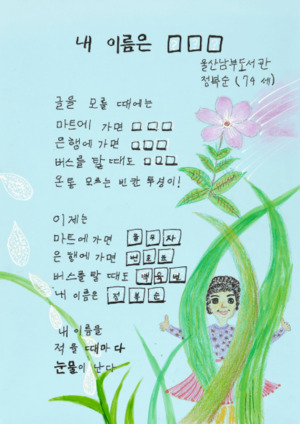 내 이름은 □□□
울산남부도서관
정복순 (74세)
글을 모를 때에는
마트에 가면 □□□
은행에 가면 □□□
버스를 탈 때도 □□□
온통 모르는 빈칸 투성이!
이제는
마트에 가면
은행에 가면 번호표
버스를 탈 때도
내 이름은 정복순
내 이름을
적을 때마다
눈물이 난다